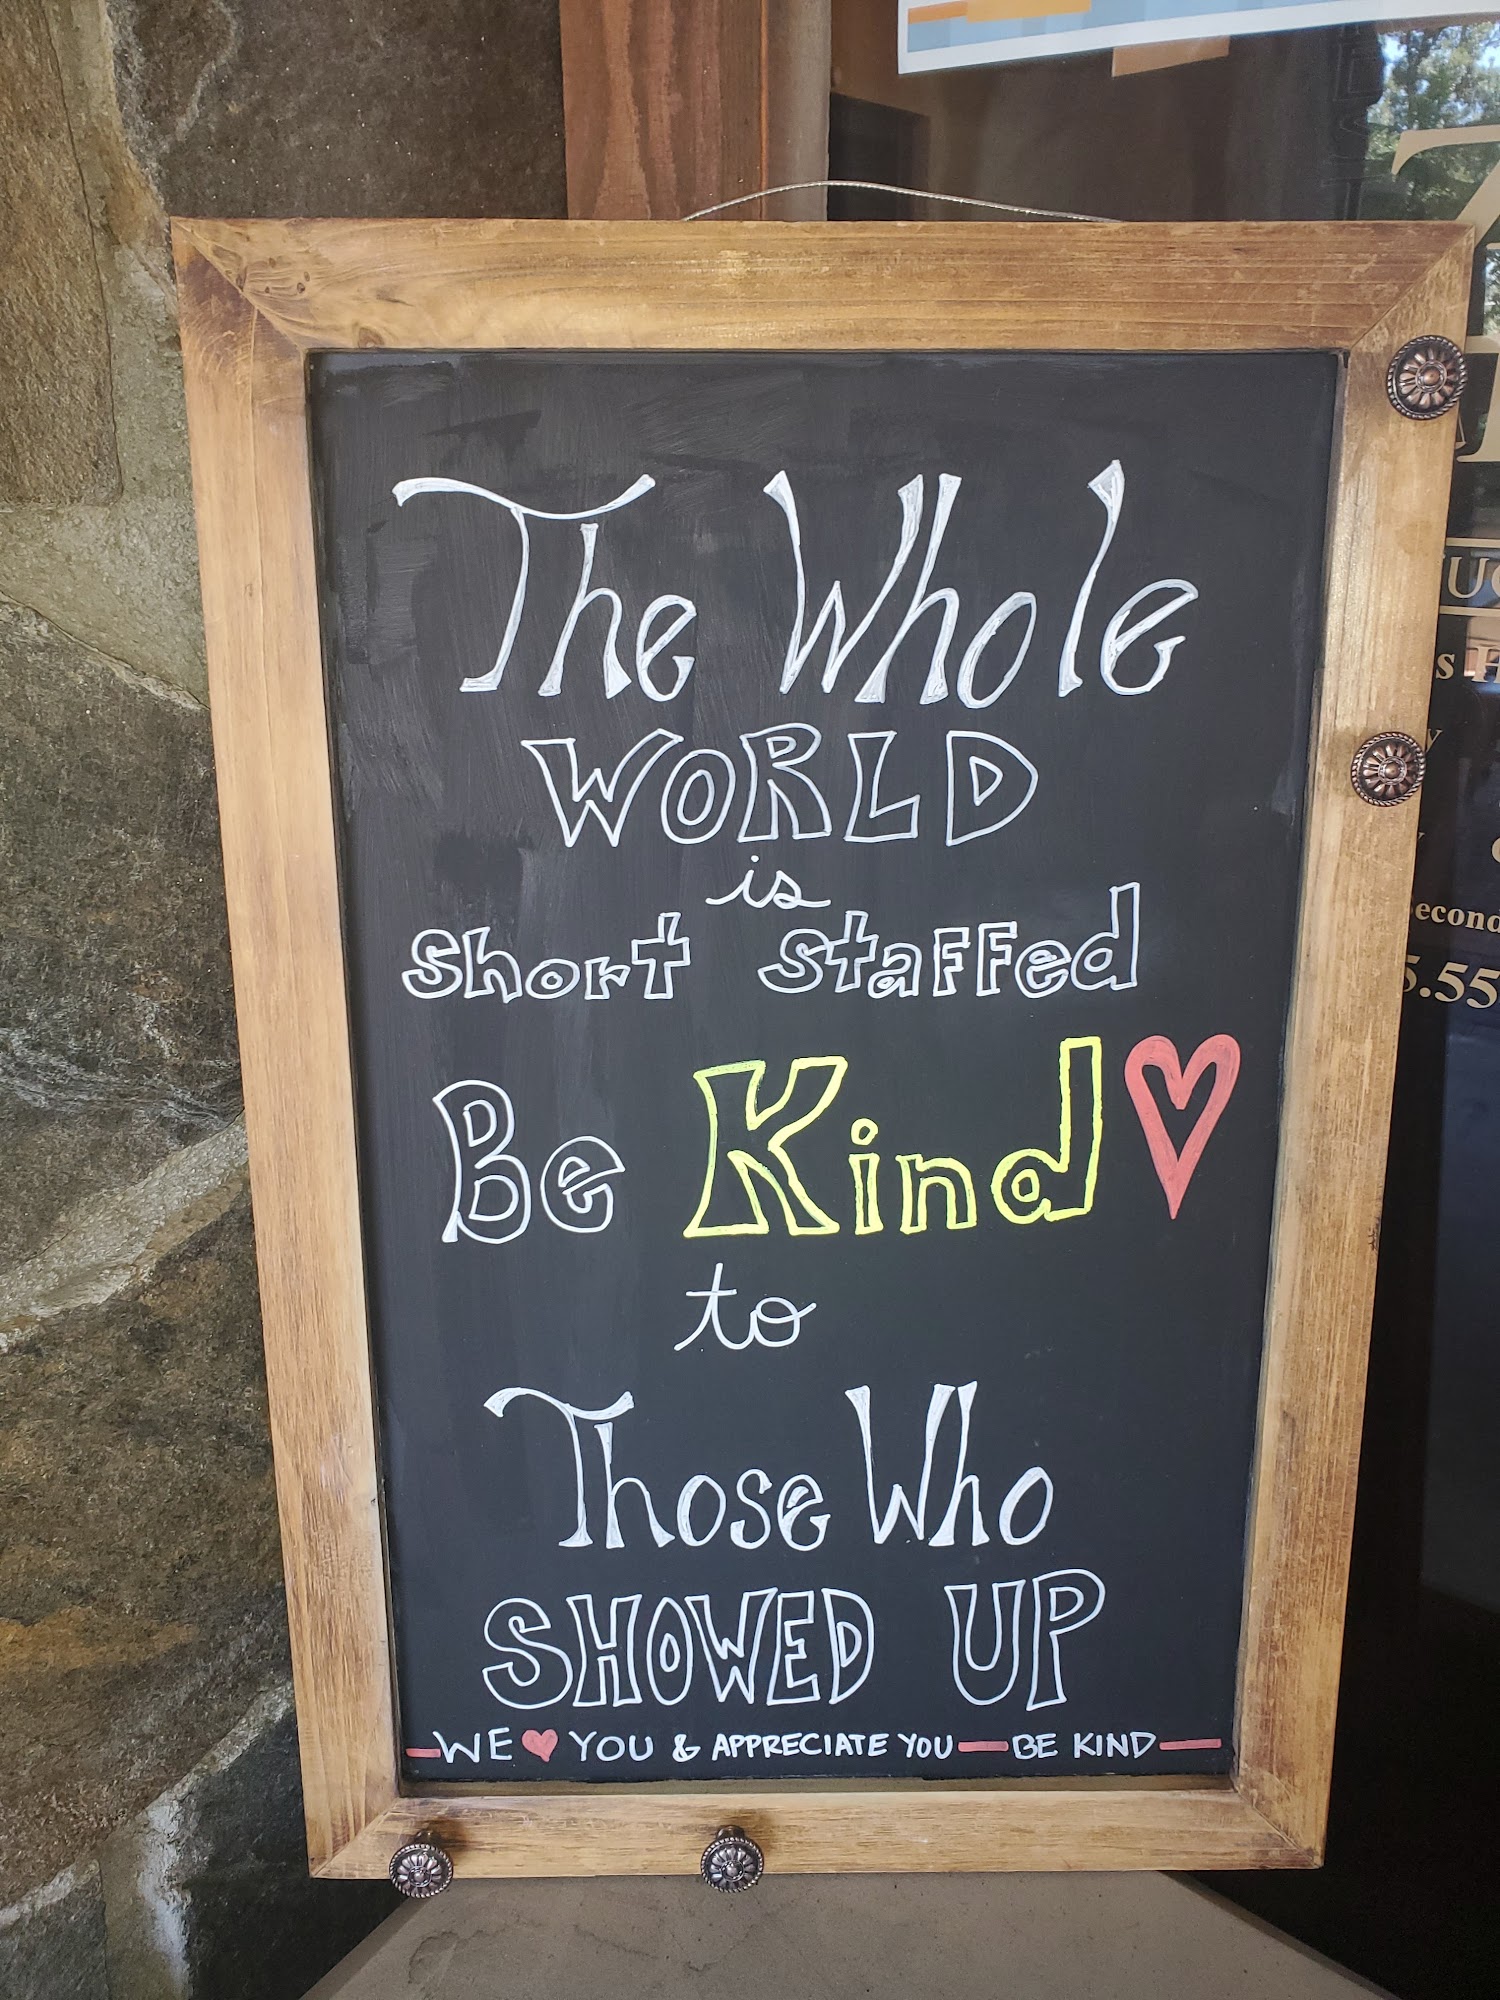 The Whole
WORLD
is
short staffed
Be Kind
to
Those Who
SHOWED UP
WE ♥ YOU & APPRECIATE YOU — BE KIND —
5.55